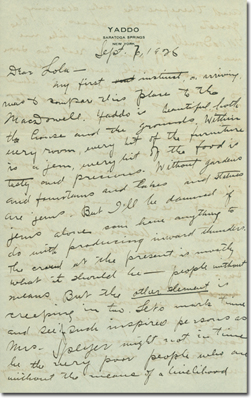 YADDO
SARATOGA SPRINGS
NEW YORK
Sept. 7, 1926
Dear Lola —
My first instinct on arriving
was to compare this place to the
MacDowell. Yaddo is beautiful both
the house and the grounds. Within
every room, every bit of the furniture
is a gem, every bit of the food is
tasty and precious. Without gardens
and fountains and lakes and statues
are gems. But I'll be damned if
gems alone have anything to
do with producing inward thunder.
The crowd at the present is mostly
what it should be — people without
means. But the other element is
creeping in too. Let's mark time
and see if such inspired persons as
Mrs. might not in time
be the very poor people who are
without the means of a livelihood